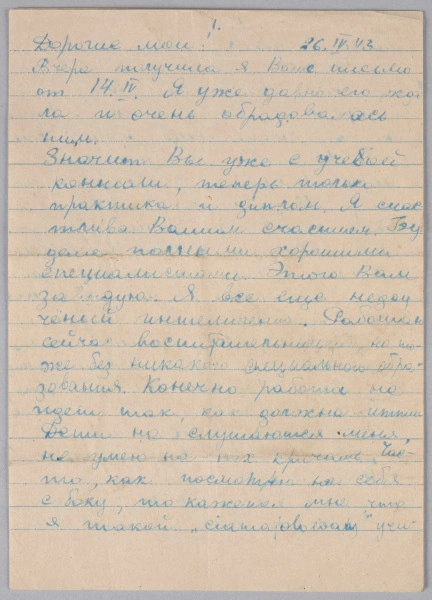 1.
Дорогие мои! 26.IV.43
Вчера получила я Ваше письмо
от 14.IV. Я уже давно его жда
ла и очень обрадовалась
ним.
Значит Вы уже с учебой
кончали, теперь только
практика и диплом. Я счас
тлива Вашим счастием. Бу
дете полными хорошими
специалистами. Этого Вам
завидую. Я все еще недоу
ченый интелигент. Работаю
сейчас воспитательницей, но то
же без никакого специального обра-
зования. Конечно работа не
идет так, как должна итти.
Дети не слушаются меня,
не умею на них кричать. Час-
то, как посмотрю на себя
с боку, то кажется мне что
я такой „ учи-